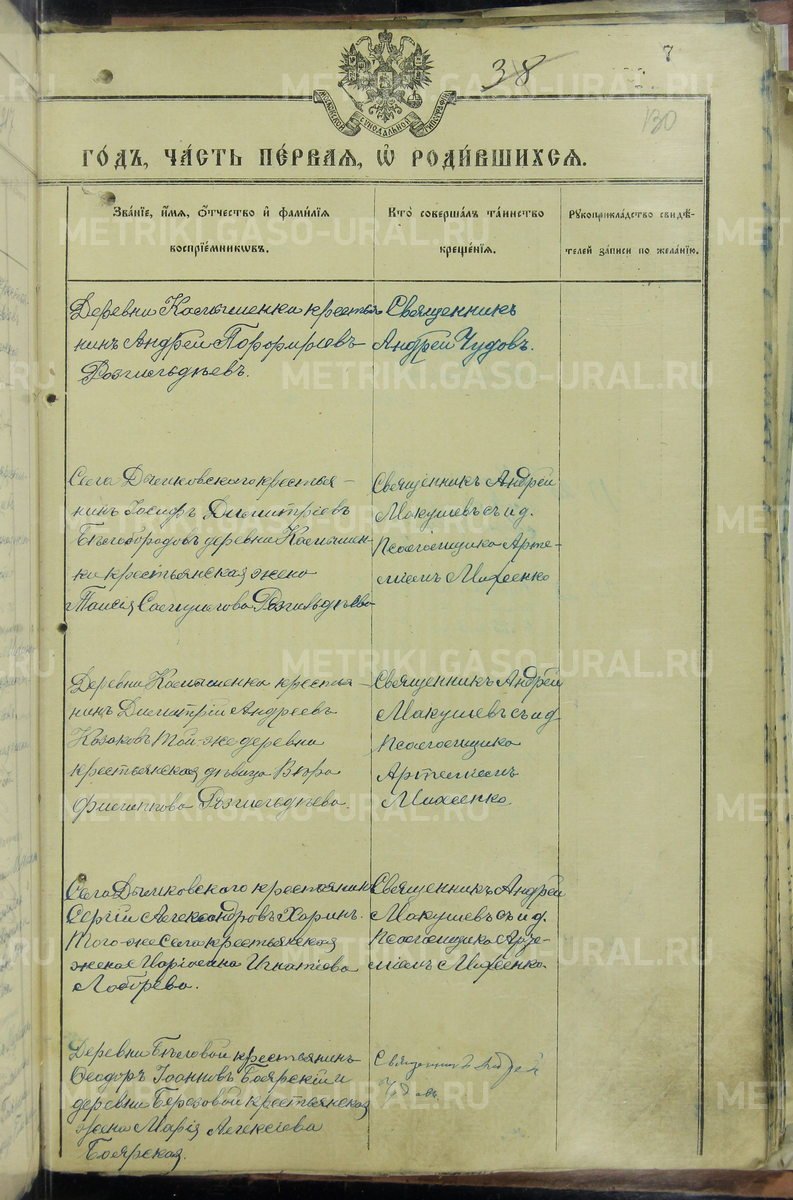 38
7
130
МОСКОВСКОЙ СѴНОДАЛЬНОЙ ТИПОГРАФІИ
ГОДЪ, ЧАСТЬ ПЕРВАЯ, Ѽ РОДИВШИХСЯ.
Званіе, имя, отчество и фамилія
воспріемникѡвъ.
Кто совершалъ таинство
крещенія.
Рукоприкладство свидѣ-
телей записи по желанію.
METRIKI.GASO-URAL.RU
Деревни Калтышенки крестья
нинъ Андрей Порфиріевъ
Розгильдѣевъ.
Священникъ
Андрей Чудовъ.
Села Дымковского крестья-
нинъ Іосифъ Димитріевъ
Бѣлобородовъ деревни
ки крестьянская жена
Таисія Розгильдѣева
Священникъ Андрей
Макушевъ съ и.д.
Псаломщика Арте-
міемъ Михеенко
Деревни крестья-
нинъ Димитрій Андреевъ
Казаковъ той-же деревни
крестьянская дѣвица Вѣра
Филиппова Розгильдѣева.
Священникъ Андрей
Макушевъ съ и.д.
Псаломщика
Артеміемъ
Михеенко.
Села Дымковского крестьянинъ
Сергій Александровъ Харинъ.
Того-же села крестьянская
жена Маріамна Игнатіева
Лобырева.
Священникъ Андрей
Макушевъ съ и.д.
Псаломщика Арте-
міемъ Михеенко.
Деревни Бѣловой крестьянинъ
Ѳеодоръ Іоанновъ Боярскій и
деревни Березовой крестьянская
жена Марія Алексіева
Боярская.
Священникъ Андрей
Чудовъ